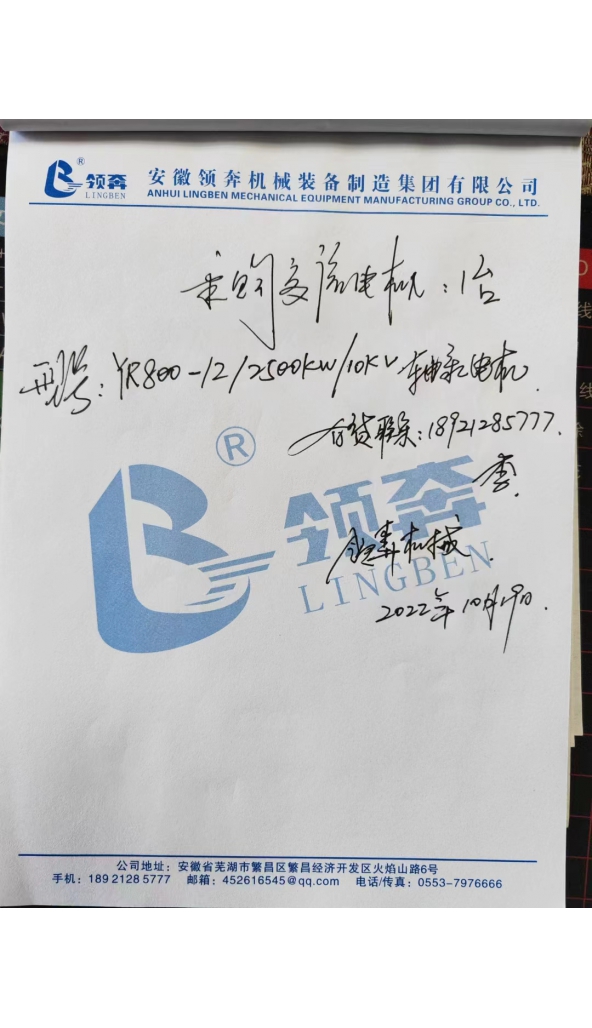 ® 领奔 LINGBEN
安徽领奔机械装备制造集团有限公司
ANHUI LINGBEN MECHANICAL EQUIPMENT MANUFACTURING GROUP CO., LTD.
采购交流电机：1台
型号：YR800-12/2500KW/10KV 轴承电机.
有货联系：18921285777.
李.
领奔机械.
2022年10月19日.
® 领奔
LINGBEN
公司地址：安徽省芜湖市繁昌区繁昌经济开发区火焰山路6号
手机：189 2128 5777 邮箱：452616545@qq.com 电话/传真：0553-7976666